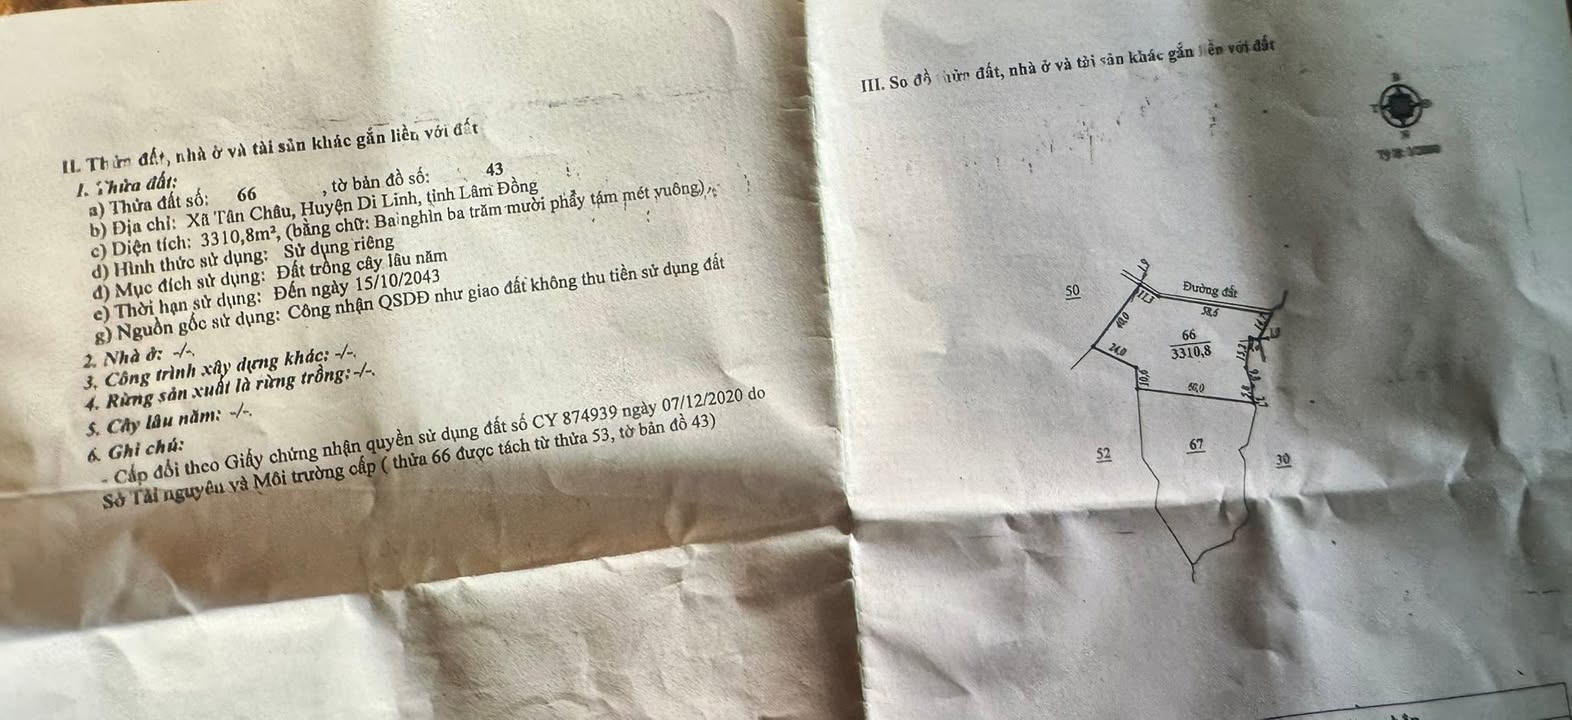 II. Thửa đất, nhà ở và tài sản khác gắn liền với đất
1. Thửa đất:
a) Thửa đất số: 66 , tờ bản đồ số: 43
b) Địa chỉ: Xã Tân Châu, Huyện Di Linh, tỉnh Lâm Đồng
c) Diện tích: 3310,8m², (bằng chữ: Ba nghìn ba trăm mười phẩy tám mét vuông)
d) Hình thức sử dụng: Sử dụng riêng
đ) Mục đích sử dụng: Đất trồng cây lâu năm
e) Thời hạn sử dụng: Đến ngày 15/10/2043
g) Nguồn gốc sử dụng: Công nhận QSDĐ như giao đất không thu tiền sử dụng đất
2. Nhà ở: -/-.
3. Công trình xây dựng khác: -/-.
4. Rừng sản xuất là rừng trồng: -/-.
5. Cây lâu năm: -/-.
6. Ghi chú:
- Cấp đổi theo Giấy chứng nhận quyền sử dụng đất số CY 874939 ngày 07/12/2020 do
Sở Tài nguyên và Môi trường cấp ( thửa 66 được tách từ thửa 53, tờ bản đồ 43)
III. Sơ đồ thửa đất, nhà ở và tài sản khác gắn liền với đất
50
Đường đất
11,3
58,5
40,0
66
3310,8
24,0
15,2
10,6
60,0
52
67
30